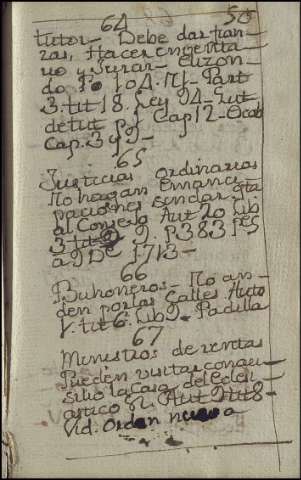 64 50
tutor - Debe dar fian-
zas, Hacer inventa-
rio y Jurar -
do Po 104. Part
3. tit 18. Ley 94 - Gut
de tut p.1 Cap 12 -
Cap. 3 y 9 -
65
Justicias ordinarias
No hagan emanci-
paciones sin dar qta
al Consejo Aut 20 Lib
3. tit 9. p 383
a 9 De 1713 -
66
Buhoneros - No an-
den por las Calles Auto
1. tit 6. Lib 9 - Padilla
67
Ministros de rentas
Pueden visitar con au-
silio la Casa del ecles-
iastico Aut 9 tit 8 -
Vid. Orden nueva